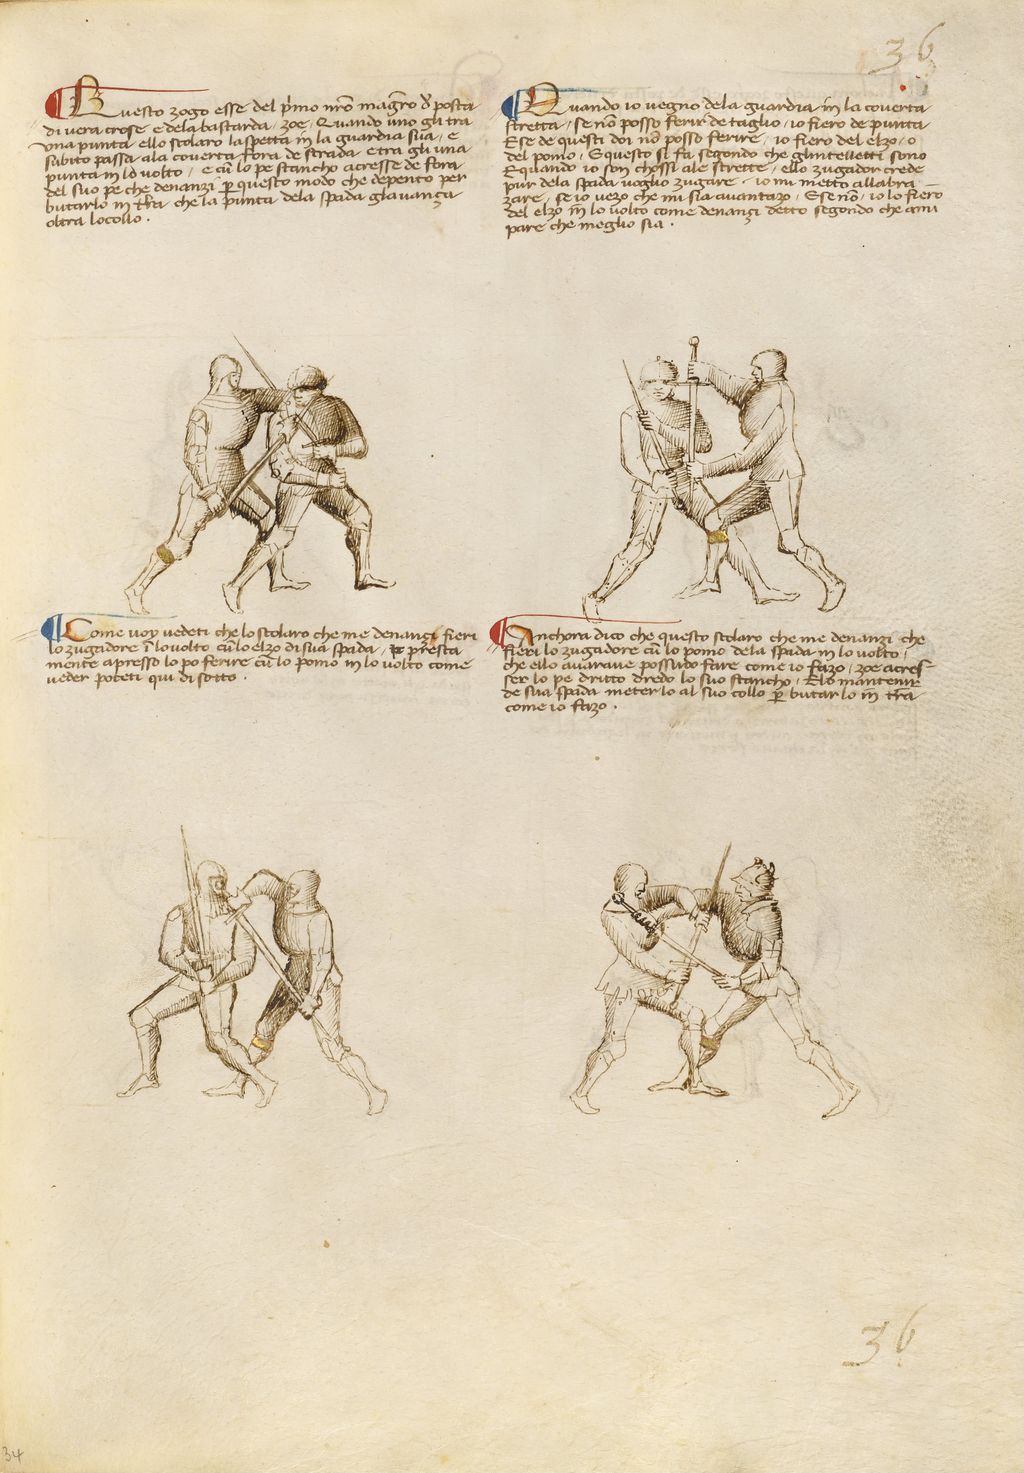 36
Questo zogo esse del p̄mo nr̄o magr̄o d̄ posta
di vera crose e dela bastarda, zoe, Quando uno gli tra
una punta ello scolaro laspetta in la guardia sua, e
subito passa ala coverta fora de strada e tra gli una
punta in lo volto, e cu̅ lo pe stancho acresse de fora
del suo pe che denanzi p̱ questo modo che depento per
butarlo in trā che la punta dela spada gla vança
oltra lo collo.
Quando io vegno dela guardia in la coverta
stretta, se nō posso ferir de taglio, io fiero de punta
Ese de questi doi nō posso ferire, io fiero del elzo, o
del pomo, Equesto si fa segondo che glintelletti sono
Equando io son chossi ale strette, ello zugador crede
pur dela spada voglio zugare, io mi metto allabra
zare, se io vezo che mi sia avantazo, Ese nō, io lo fiero
del elzo in lo volto come denanzi detto segondo che ami
pare che meglio sia.
Come voy vedeti che lo scolaro che me denançi fieri
lo zugadore ī lo volto cu̅ lo elzo di sua spada, presta
mente apresso lo po ferire cu̅ lo pomo in lo volto come
veder poteti qui di sotto.
Anchora dico che questo scolaro che me denanzi che
fieri lo zugadore cu̅ lo pomo dela spada in lo volto,
che ello avarave possudo fare come io fazo, zoe acres
ser lo pe dritto dredo lo suo stancho, Elo mantenir
de sua spada meterlo al suo collo p̱ butarlo in trā
come io fazo.
36
34